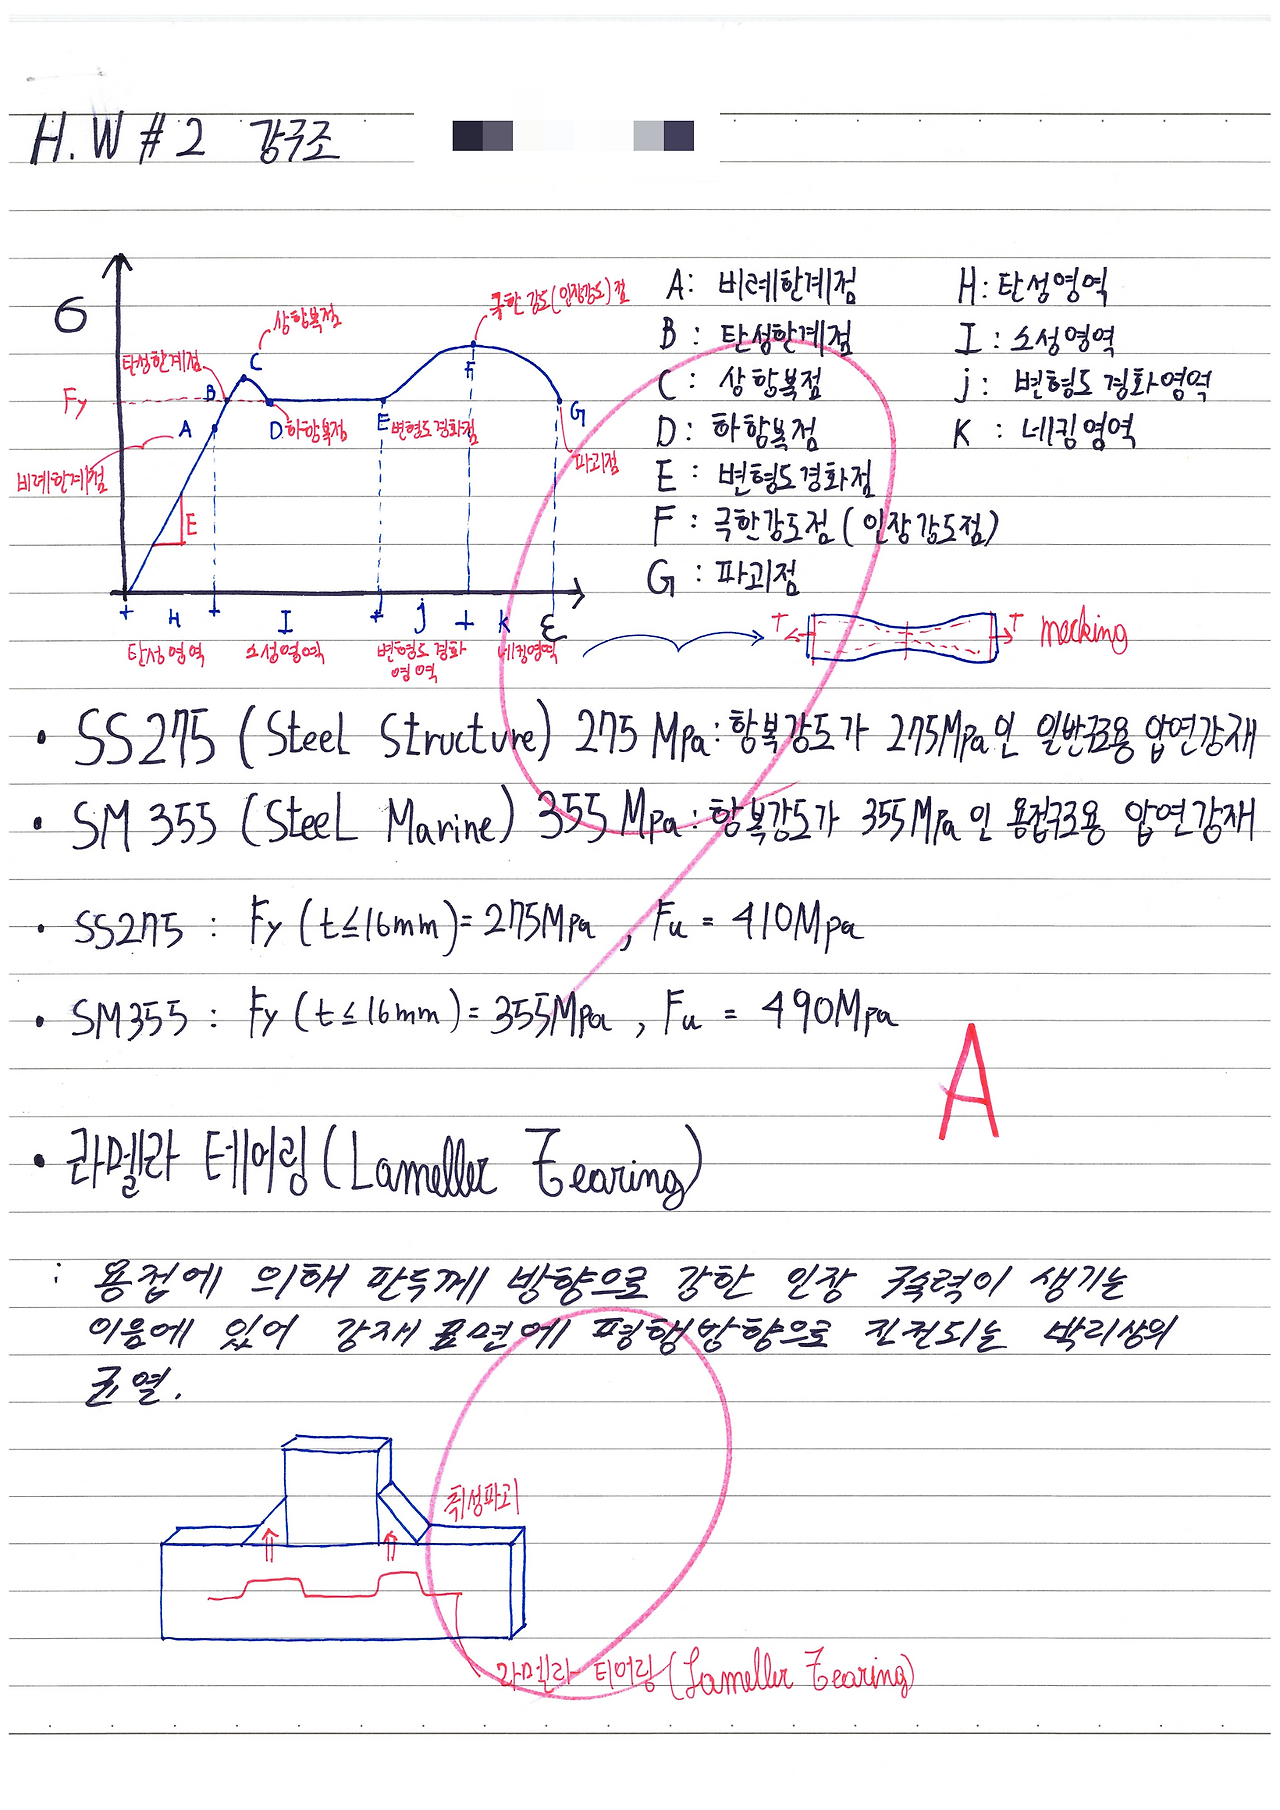 H.W #2 강구조
σ
Fy
비례한계점
탄성한계점
상항복점
하항복점
변형도경화점
극한강도(인장강도)점
파괴점
A
B
C
D
E
F
G
E
H
I
j
K
ε
탄성영역
소성영역
변형도경화
영역
네킹영역
A: 비례한계점
B: 탄성한계점
C: 상항복점
D: 하항복점
E: 변형도경화점
F: 극한강도점(인장강도점)
G: 파괴점
H: 탄성영역
I: 소성영역
j: 변형도경화영역
K: 네킹영역
T
T
necking
• SS275 (Steel Structure) 275 Mpa: 항복강도가 275Mpa인 일반구조용 압연강재
• SM355 (Steel Marine) 355 Mpa: 항복강도가 355Mpa인 용접구조용 압연강재
• SS275 : Fy (t≤16mm)=275Mpa, Fu = 410Mpa
• SM355 : Fy (t≤16mm)=355Mpa, Fu = 490Mpa
A
• 라멜라 테어링(Lameller Tearing)
: 용접에 의해 판두께 방향으로 강한 인장 구속력이 생기는
이음에 있어 강재표면에 평행방향으로 진전되는 박리상의
균열.
취성파괴
라멜라 티어링(Lameller Tearing)